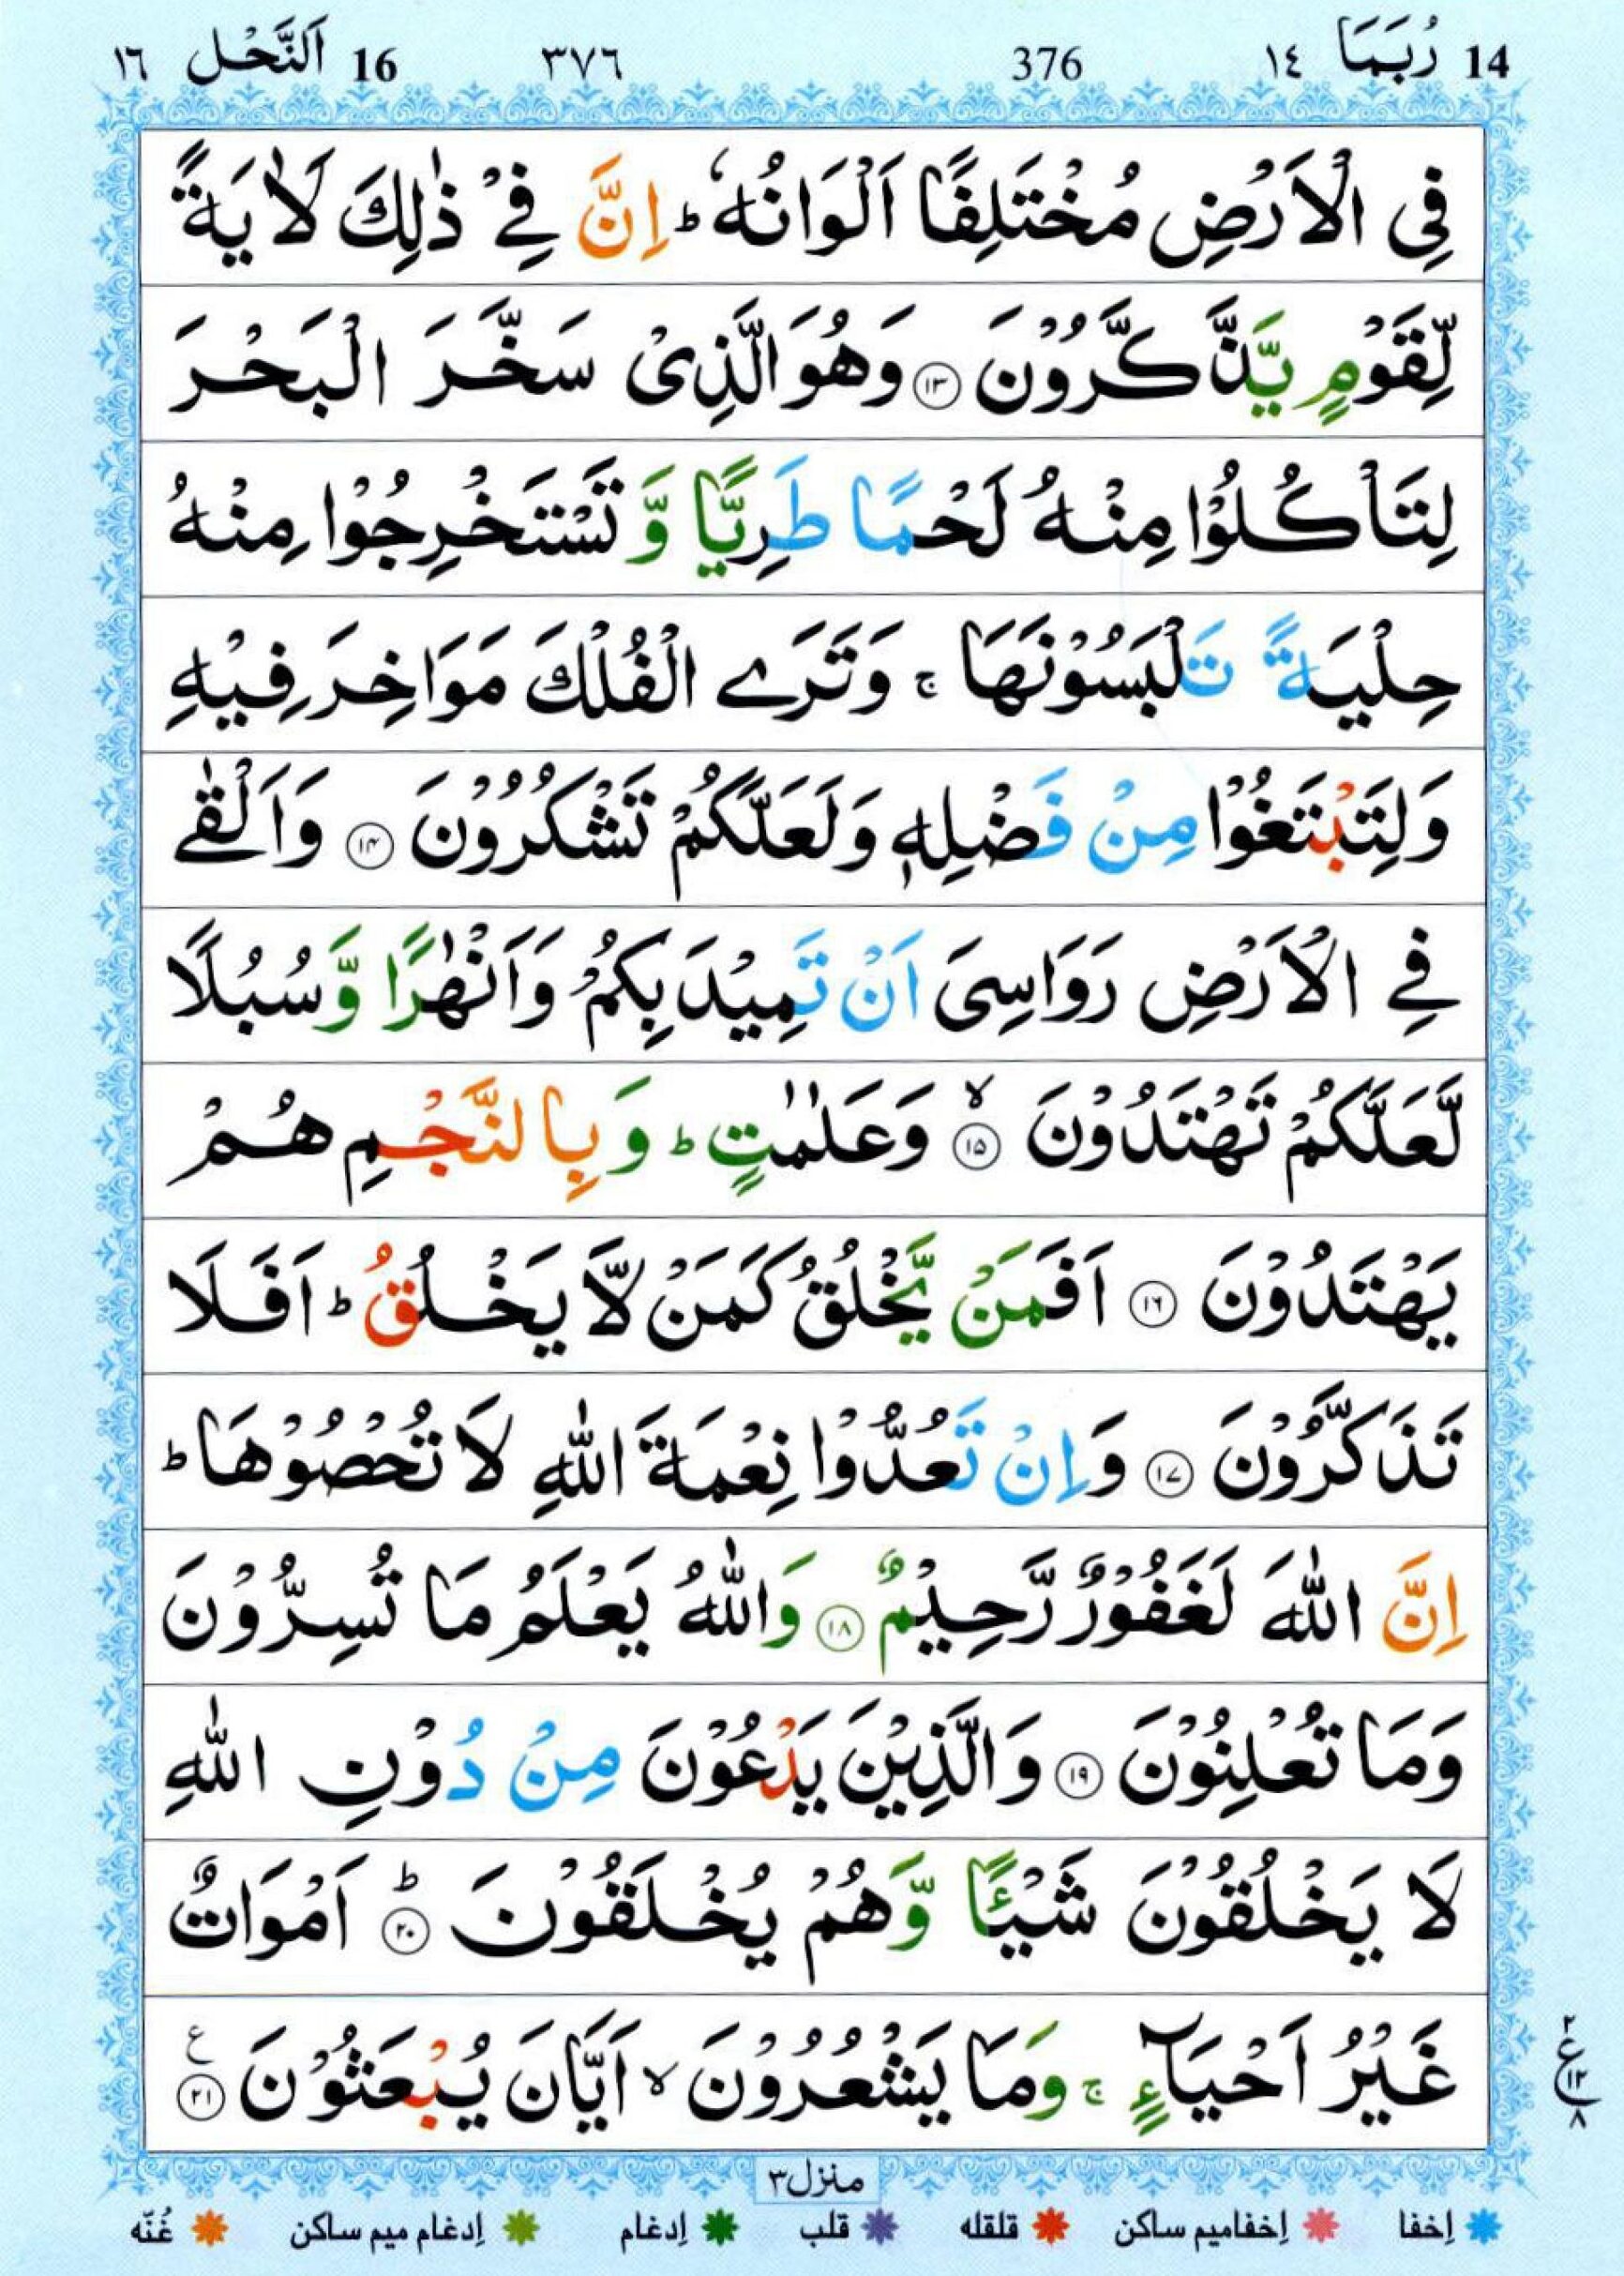 14 رُبَمَا ١٤ 376 ٣٧٦ 16 اَلنَّحْل ١٦
فِی الْاَرْضِ مُخْتَلِفًا اَلْوَانُهٗ ؕ اِنَّ فِیْ ذٰلِكَ لَاٰیَةً
لِّقَوْمٍ یَّذَّكَّرُوْنَ ۝۱۳ وَهُوَ الَّذِیْ سَخَّرَ الْبَحْرَ
لِتَاْكُلُوْا مِنْهُ لَحْمًا طَرِیًّا وَّ تَسْتَخْرِجُوْا مِنْهُ
حِلْیَةً تَلْبَسُوْنَهَا ۚ وَتَرَے الْفُلْكَ مَوَاخِرَ فِیْهِ
وَلِتَبْتَغُوْا مِنْ فَضْلِهٖ وَلَعَلَّكُمْ تَشْكُرُوْنَ ۝۱۴ وَاَلْقٰے
فِے الْاَرْضِ رَوَاسِیَ اَنْ تَمِیْدَ بِكُمْ وَاَنْهٰرًا وَّسُبُلًا
لَّعَلَّكُمْ تَهْتَدُوْنَ ۝۱۵ ۙ وَعَلٰمٰتٍ ؕ وَبِالنَّجْمِ هُمْ
یَهْتَدُوْنَ ۝۱۶ اَفَمَنْ یَّخْلُقُ كَمَنْ لَّا یَخْلُقُ ؕ اَفَلَا
تَذَكَّرُوْنَ ۝۱۷ وَاِنْ تَعُدُّوْا نِعْمَةَ اللّٰهِ لَا تُحْصُوْهَا ؕ
اِنَّ اللّٰهَ لَغَفُوْرٌ رَّحِیْمٌ ۝۱۸ وَاللّٰهُ یَعْلَمُ مَا تُسِرُّوْنَ
وَمَا تُعْلِنُوْنَ ۝۱۹ وَالَّذِیْنَ یَدْعُوْنَ مِنْ دُوْنِ اللّٰهِ
لَا یَخْلُقُوْنَ شَیْـًٔا وَّهُمْ یُخْلَقُوْنَ ۝۲۰ ؕ اَمْوَاتٌ
غَیْرُ اَحْیَآءٍ ۚ وَمَا یَشْعُرُوْنَ ۙ اَیَّانَ یُبْعَثُوْنَ ۝۲۱ ع
۲ ع ۱۲ ۸
منزل۳
اِخفا اِخفامیم ساکن قلقله قلب اِدغام اِدغام میم ساکن غُنّه